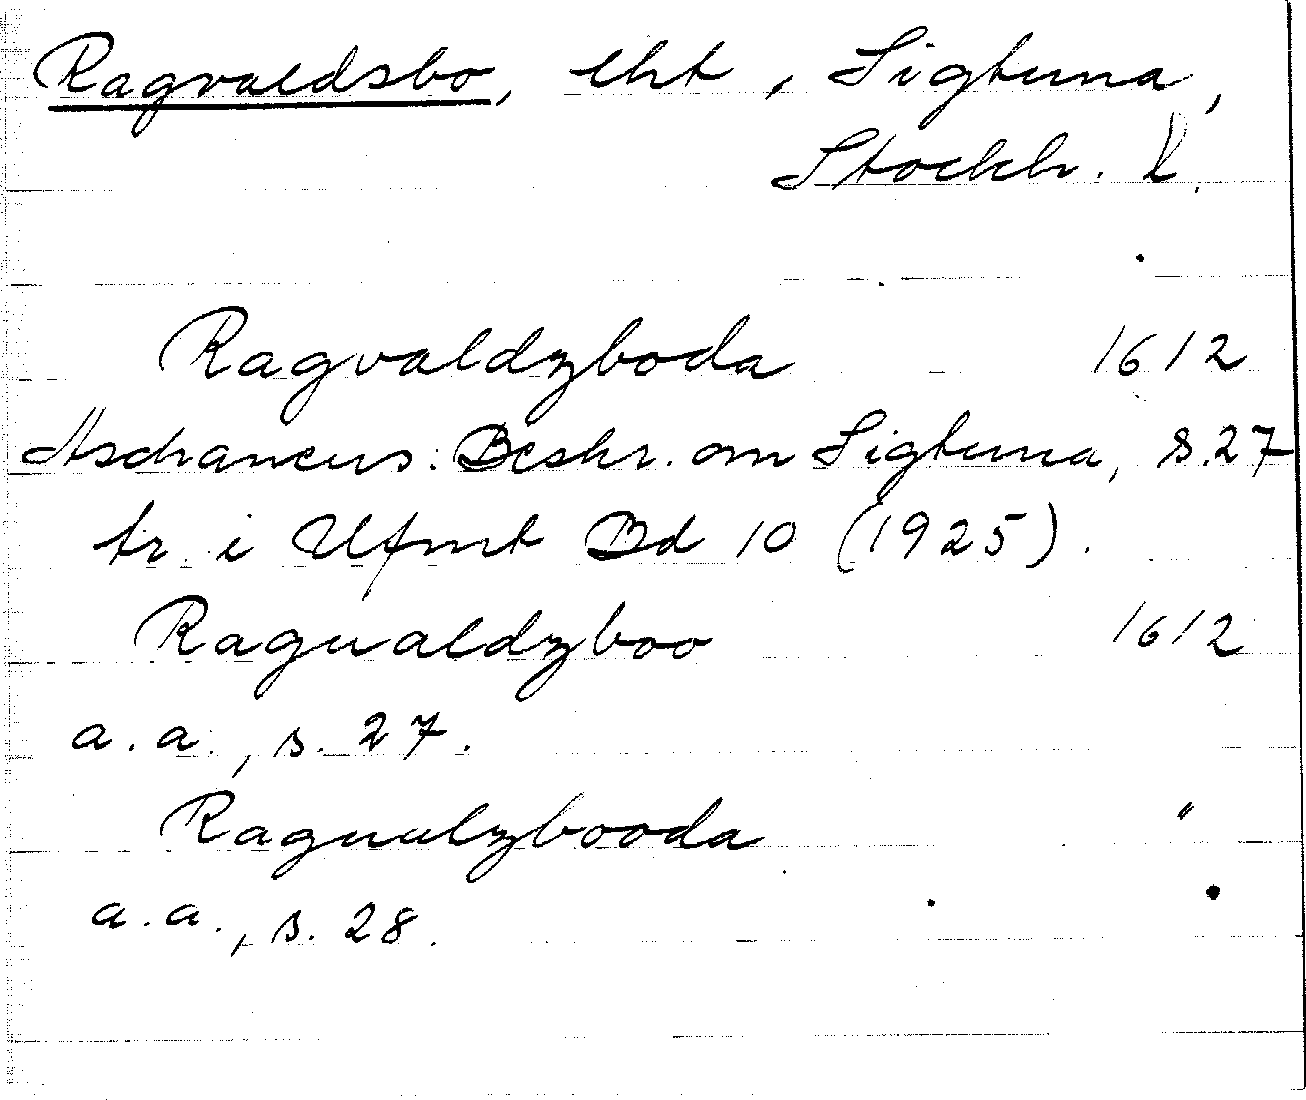 Ragvaldsbo, lht, Sigtuna,
Stockh. l.
Ragvaldzboda 1612
Aschaneus: Beskr. om Sigtuna, s. 27
tr. i Ufmt Bd 10 (1925).
Ragualdzboo 1612
a.a., s. 27.
Ragualzbooda "
a.a., s. 28.